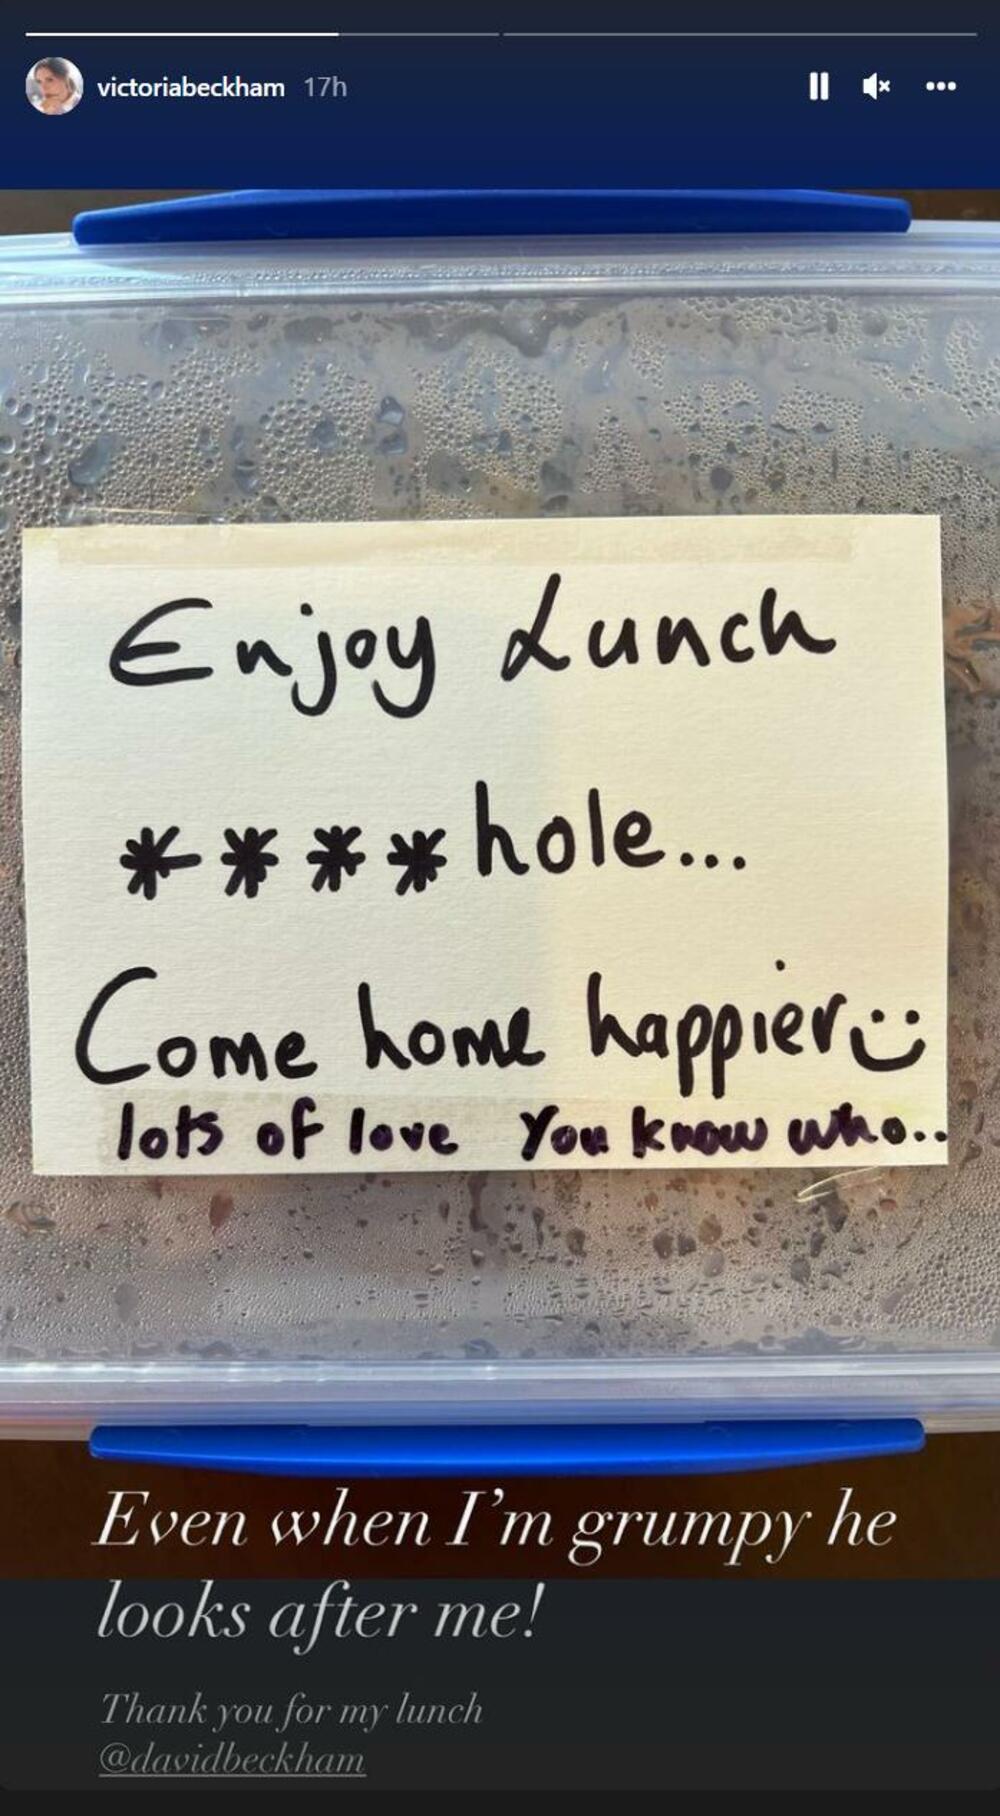 victoriabeckham 17h
Enjoy Lunch
****hole...
Come home happier :)
lots of love You know who..
Even when I'm grumpy he
looks after me!
Thank you for my lunch
@davidbeckham